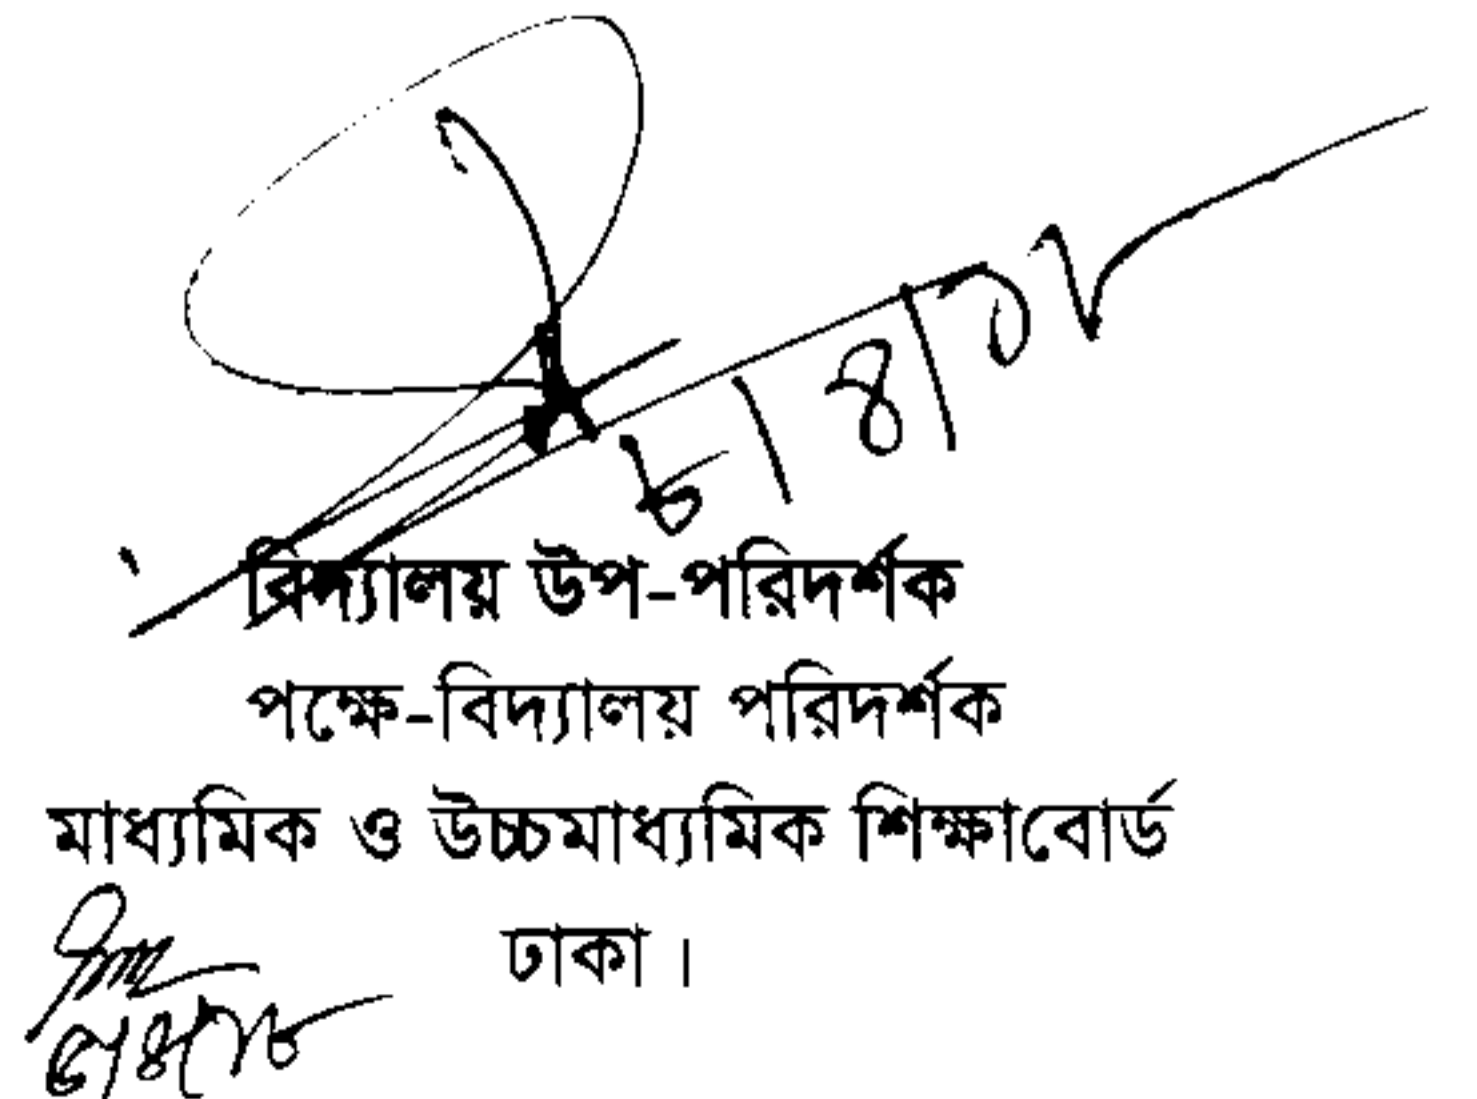 ৮/৪/১৮
বিদ্যালয় উপ-পরিদর্শক
পক্ষে-বিদ্যালয় পরিদর্শক
মাধ্যমিক ও উচ্চমাধ্যমিক শিক্ষাবোর্ড
ঢাকা।